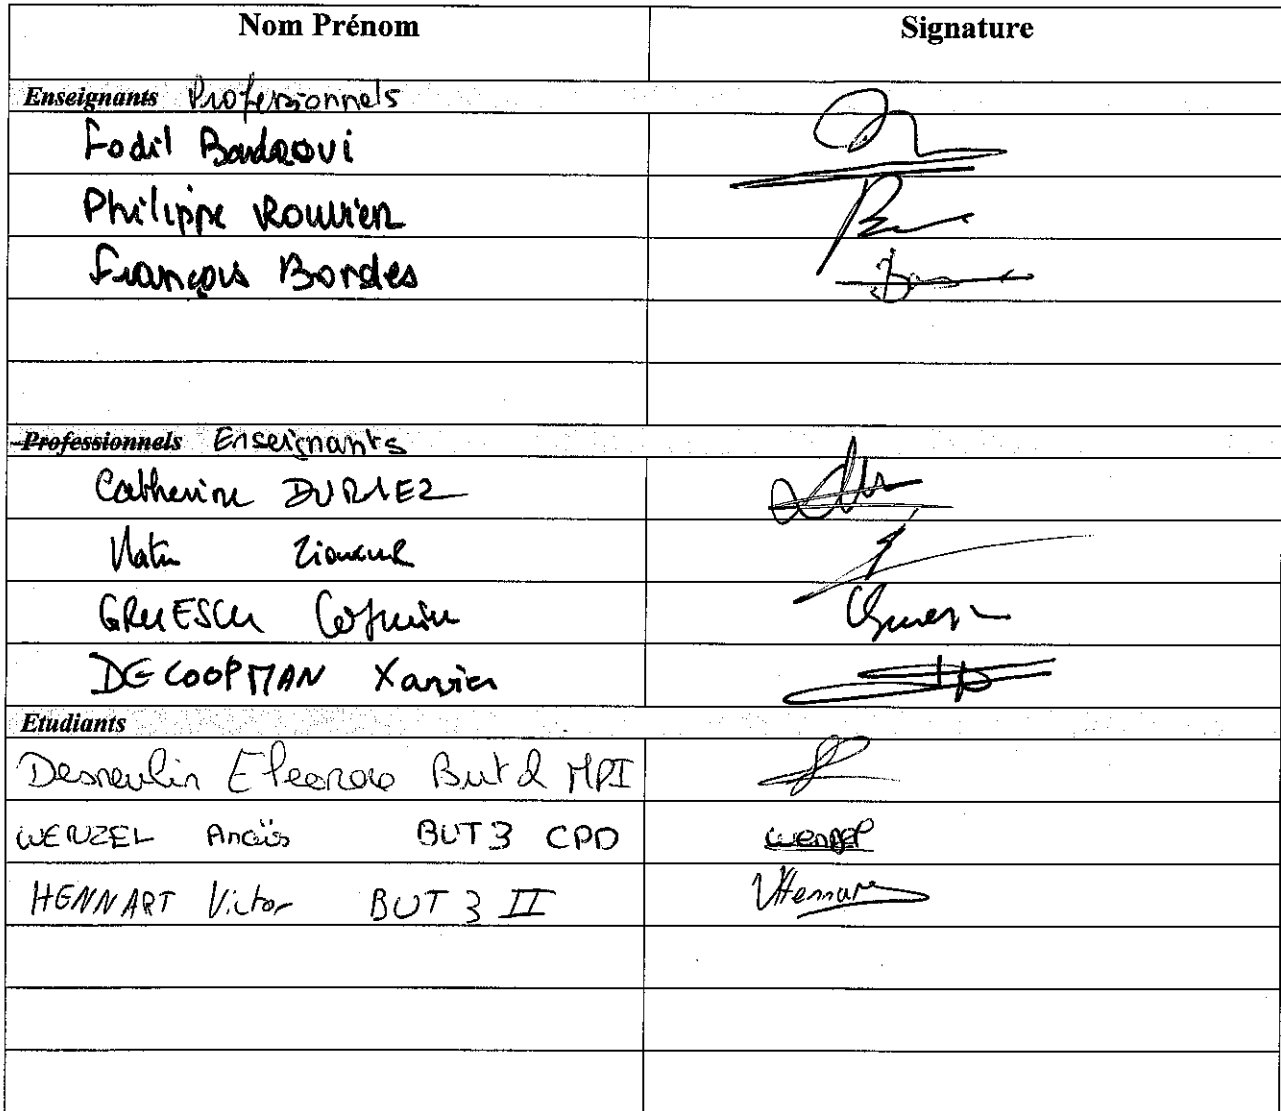 Nom Prénom Signature
Enseignants Professionnels
Fodil
Philippe Rouvier
François Bordes
Professionnels Enseignants
Catherine DURIEZ
GRUESCU
DECOOPMAN Xavier
Etudiants
But 2 MPI
WENZEL Anaïs BUT 3 CPD wenzel
HENNART Victor BUT 3 II VHennart